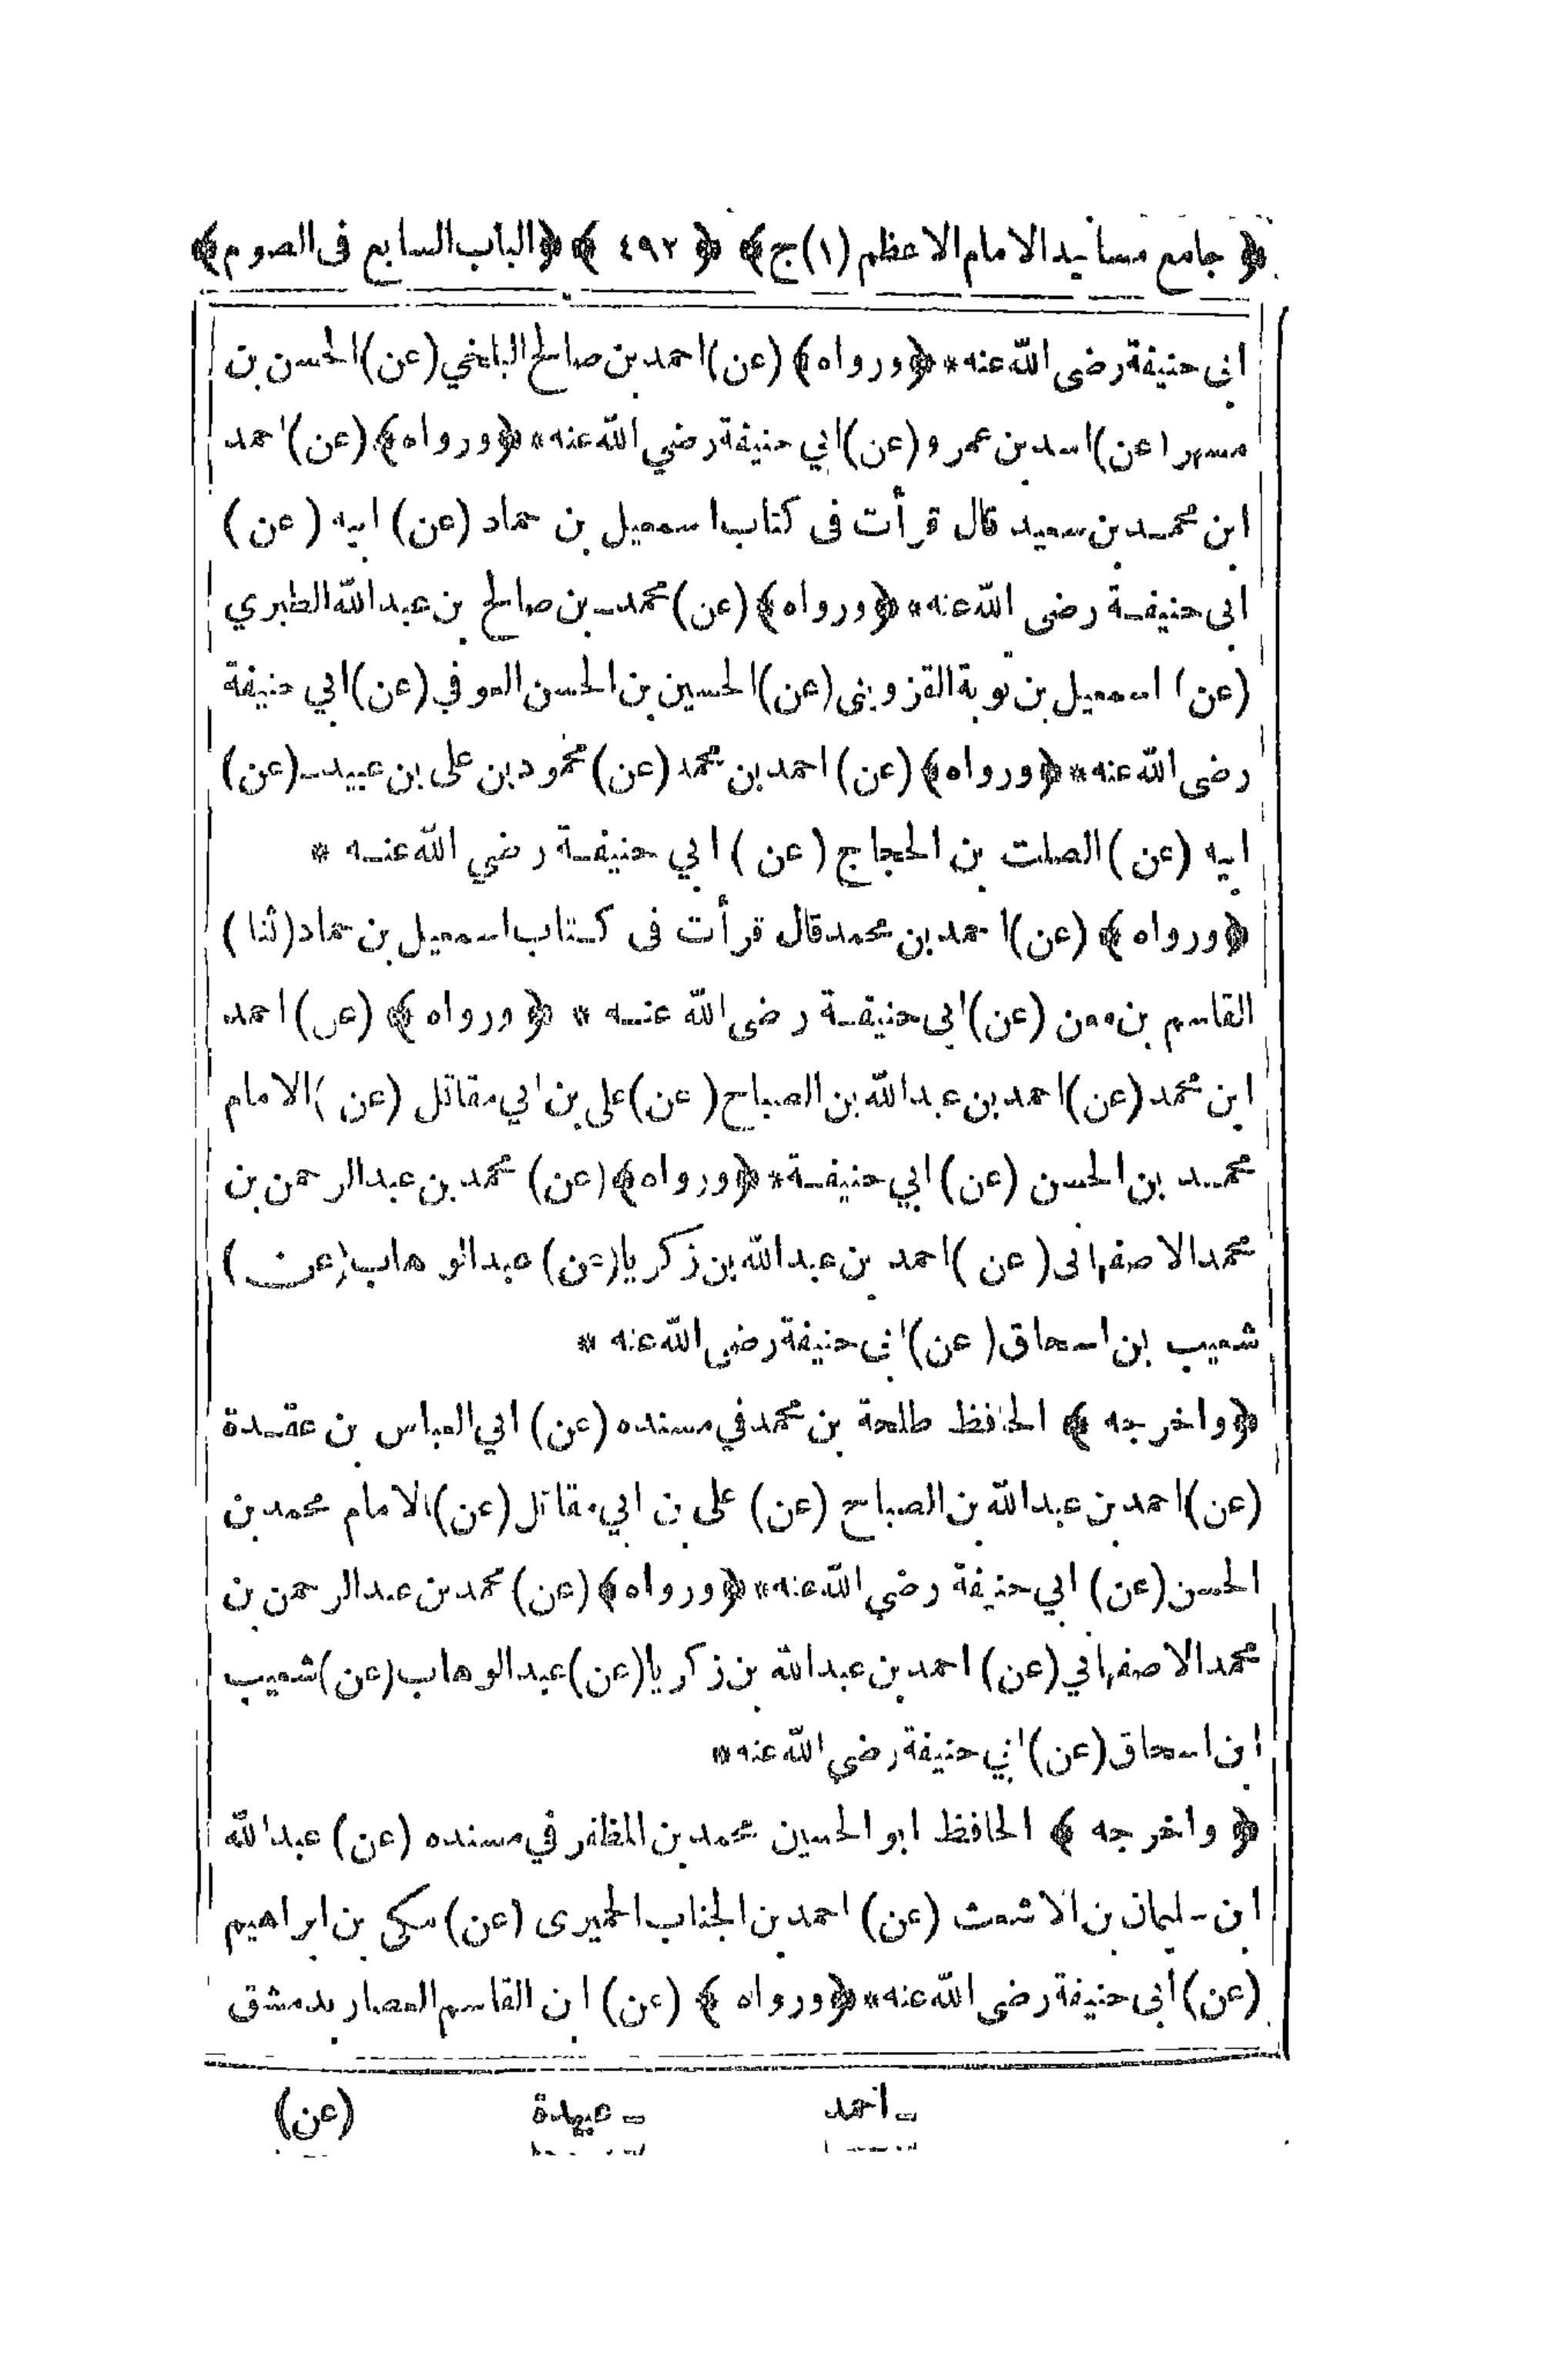 ﴿ جامع مسانيد الامام الاعظم (١) ج﴾ ﴿ ٤٩٢ ﴾ ﴿الباب السابع فى الصوم﴾
ابى حنيفة رضى الله عنه * ﴿ورواه﴾ (عن) احمد بن صالح البلخي (عن) الحسن بن
مسهر (عن) اسد بن عمرو (عن) ابي حنيفة رضي الله عنه * ﴿ورواه﴾ (عن) احمد
ابن محمد بن سعيد قال قرأت فى كتاب اسمعيل بن حماد (عن) ابيه (عن)
ابى حنيفة رضى الله عنه * ﴿ورواه﴾ (عن) محمد بن صالح بن عبدالله الطبري
(عن) اسمعيل بن توبة القزوينى (عن) الحسين بن الحسن العوفي (عن) ابي حنيفة
رضى الله عنه * ﴿ورواه﴾ (عن) احمد بن محمد (عن) محمود بن على بن عبيد (عن)
ابيه (عن) الصلت بن الحجاج (عن) ابي حنيفة رضي الله عنه *
﴿ورواه﴾ (عن) احمد بن محمد قال قرأت فى كتاب اسمعيل بن حماد (ثنا)
القاسم بن معن (عن) ابى حنيفة رضى الله عنه * ﴿ورواه﴾ (عن) احمد
ابن محمد (عن) احمد بن عبدالله بن الصباح (عن) على بن ابي مقاتل (عن) الامام
محمد بن الحسن (عن) ابي حنيفة * ﴿ورواه﴾ (عن) محمد بن عبدالرحمن بن
محمد الاصفهانى (عن) احمد بن عبدالله بن زكريا (عن) عبدالوهاب (عن)
شعيب بن اسحاق (عن) ابى حنيفة رضى الله عنه *
﴿واخرجه﴾ الحافظ طلحة بن محمد في مسنده (عن) ابي العباس بن عقدة
(عن) احمد بن عبدالله بن الصباح (عن) على بن ابي مقاتل (عن) الامام محمد بن
الحسن (عن) ابي حنيفة رضي الله عنه * ﴿ورواه﴾ (عن) محمد بن عبدالرحمن بن
محمد الاصفهاني (عن) احمد بن عبدالله بن زكريا (عن) عبدالوهاب (عن) شعيب
ابن اسحاق (عن) ابي حنيفة رضي الله عنه *
﴿واخرجه﴾ الحافظ ابو الحسين محمد بن المظفر في مسنده (عن) عبدالله
ابن سليمان بن الاشعث (عن) احمد بن الجناب الحميرى (عن) مكى بن ابراهيم
(عن) أبى حنيفة رضى الله عنه * ﴿ورواه﴾ (عن) ابن القاسم العصار بدمشق
ـ احمد ـ عبيدة (عن)